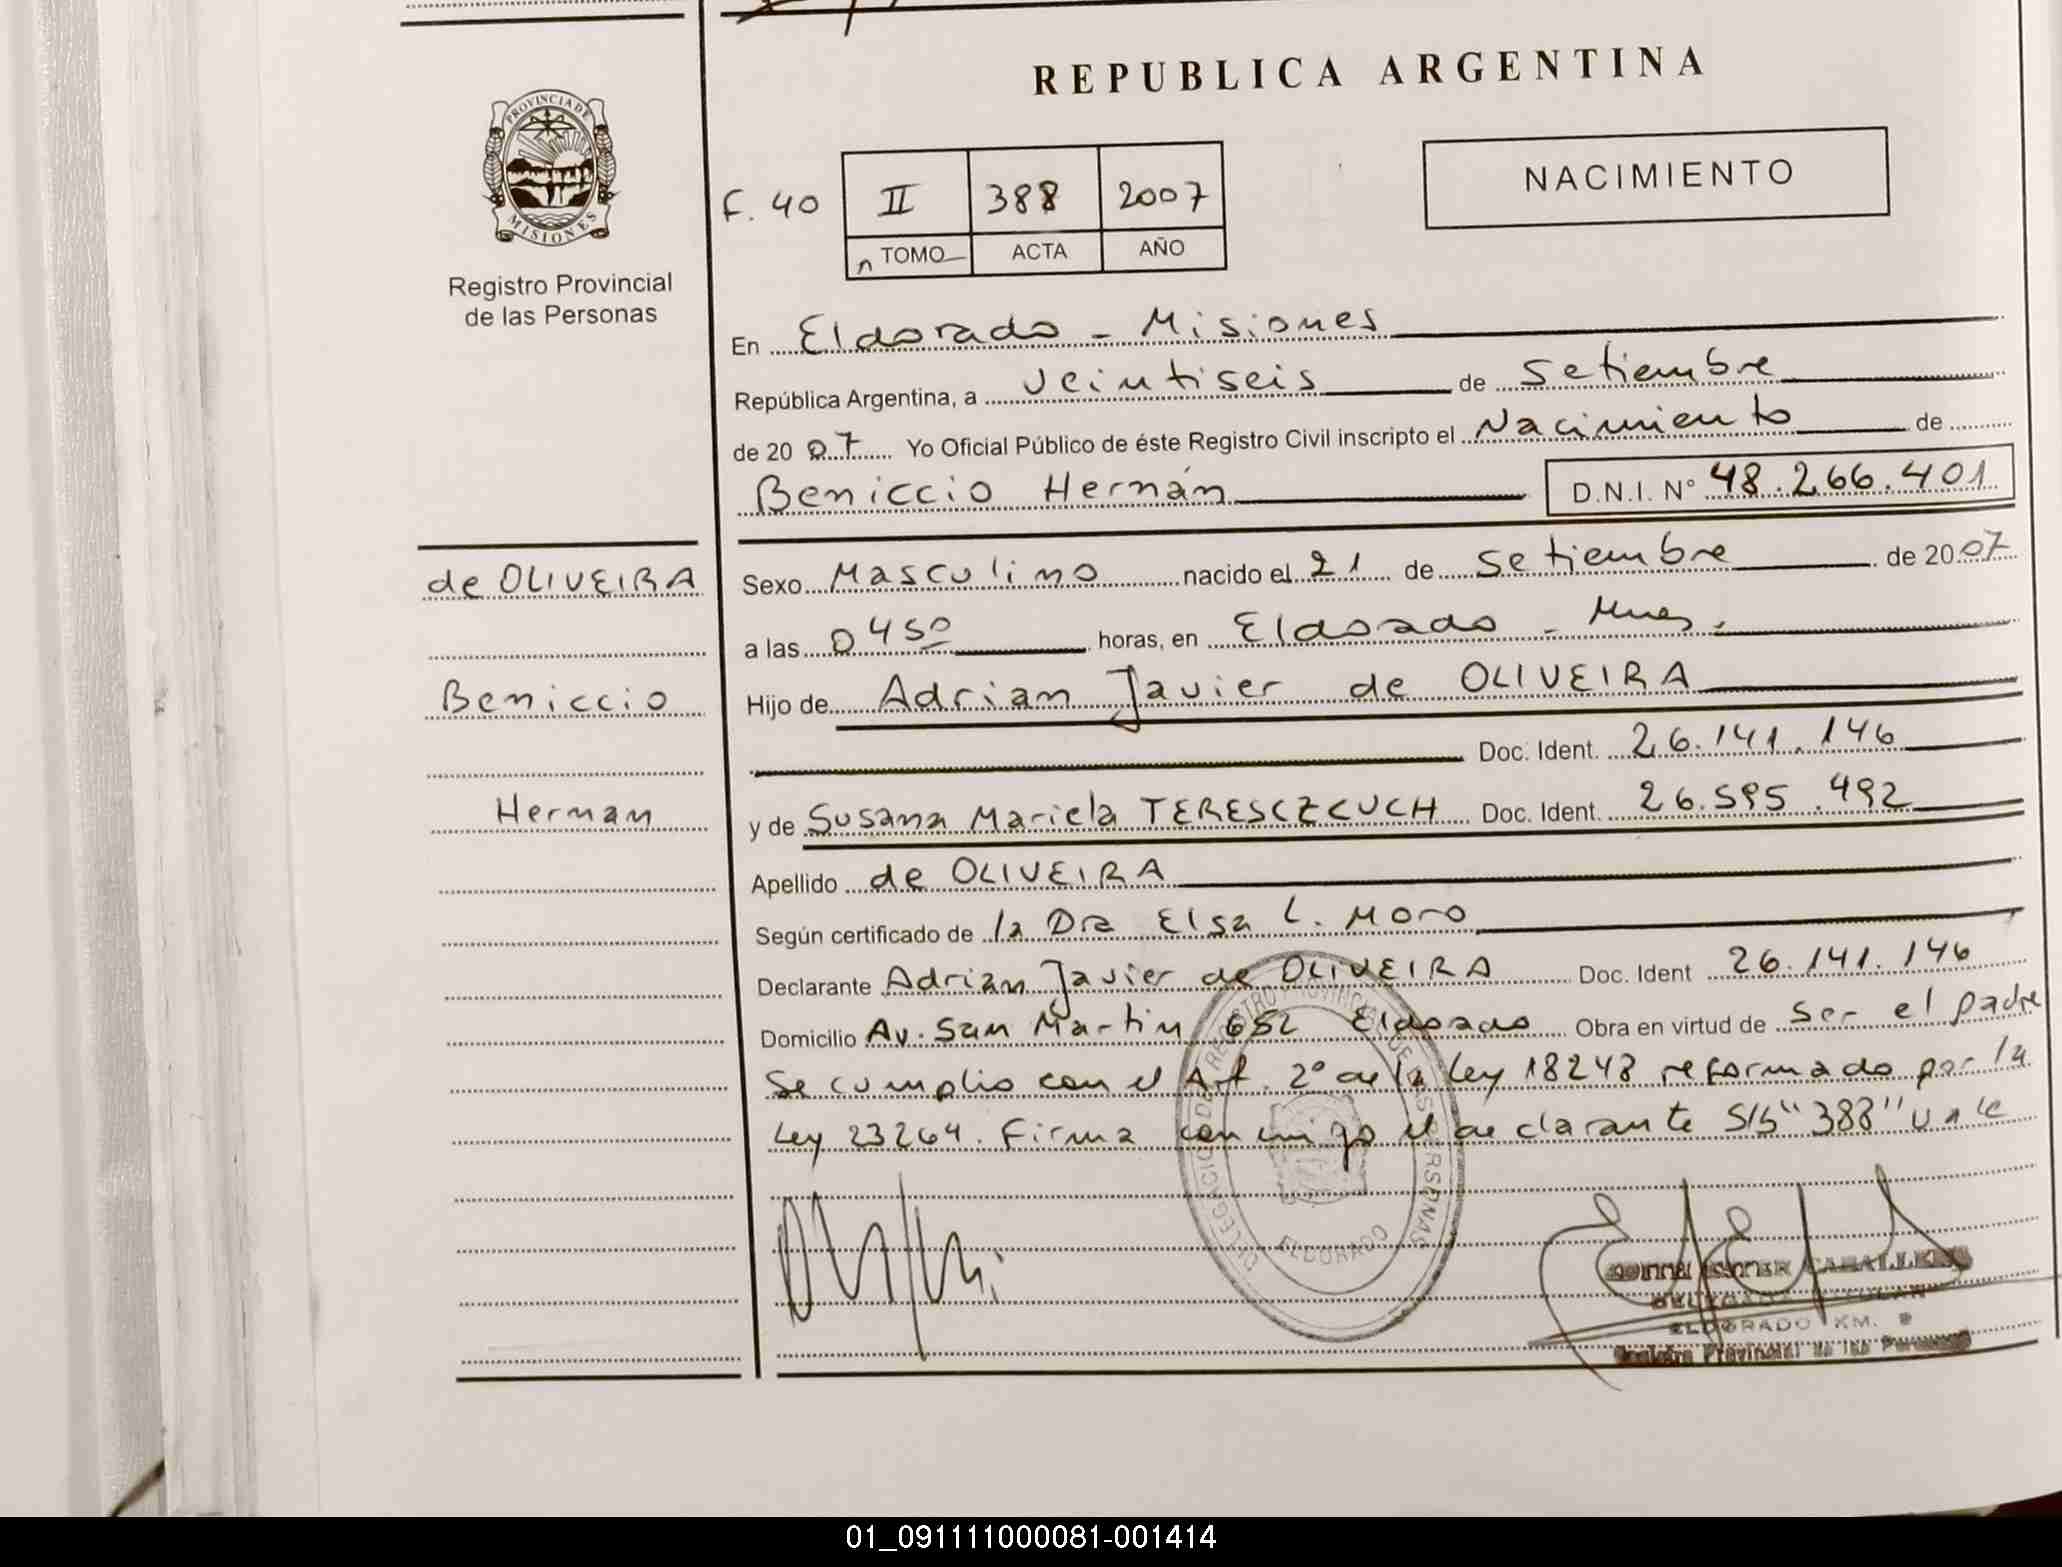 REPUBLICA ARGENTINA
PROVINCIA DE
MISIONES
Registro Provincial
de las Personas
NACIMIENTO
F. 40 II 388 2007
TOMO ACTA AÑO
En Eldorado - Misiones
República Argentina, a veintiseis de Setiembre
de 2007 Yo Oficial Público de éste Registro Civil inscripto el Nacimiento de
Beniccio Hernán D.N.I. N° 48.266.401
de OLIVEIRA
Beniccio
Hernan
Sexo Masculino nacido el 21 de Setiembre de 2007
a las 0450 horas, en Eldorado - Mnes.
Hijo de Adrian Javier de OLIVEIRA
Doc. Ident. 26.141.146
y de Susana Mariela TERESCZCUCH Doc. Ident. 26.595.492
Apellido de OLIVEIRA
Según certificado de la Dra Elsa L. Moro
Declarante Adrian Javier de OLIVEIRA Doc. Ident 26.141.146
Domicilio Av. San Martin 652 Eldorado Obra en virtud de ser el padre
Se cumplio con el Art. 2° de la Ley 18248 reformado por la
Ley 23264. Firma conmigo el declarante S/b "388" vale
DELEGACION DE REGISTRO PROVINCIAL DE LAS PERSONAS
ELDORADO
ESTER CABALLERO
ELDORADO KM. 9
Registro Provincial de las Personas
01_091111000081-001414